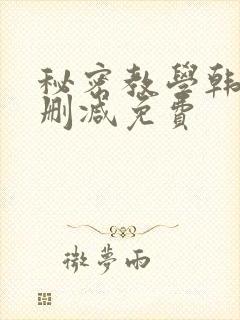 秘密教學韩
删减免費
微夢雨